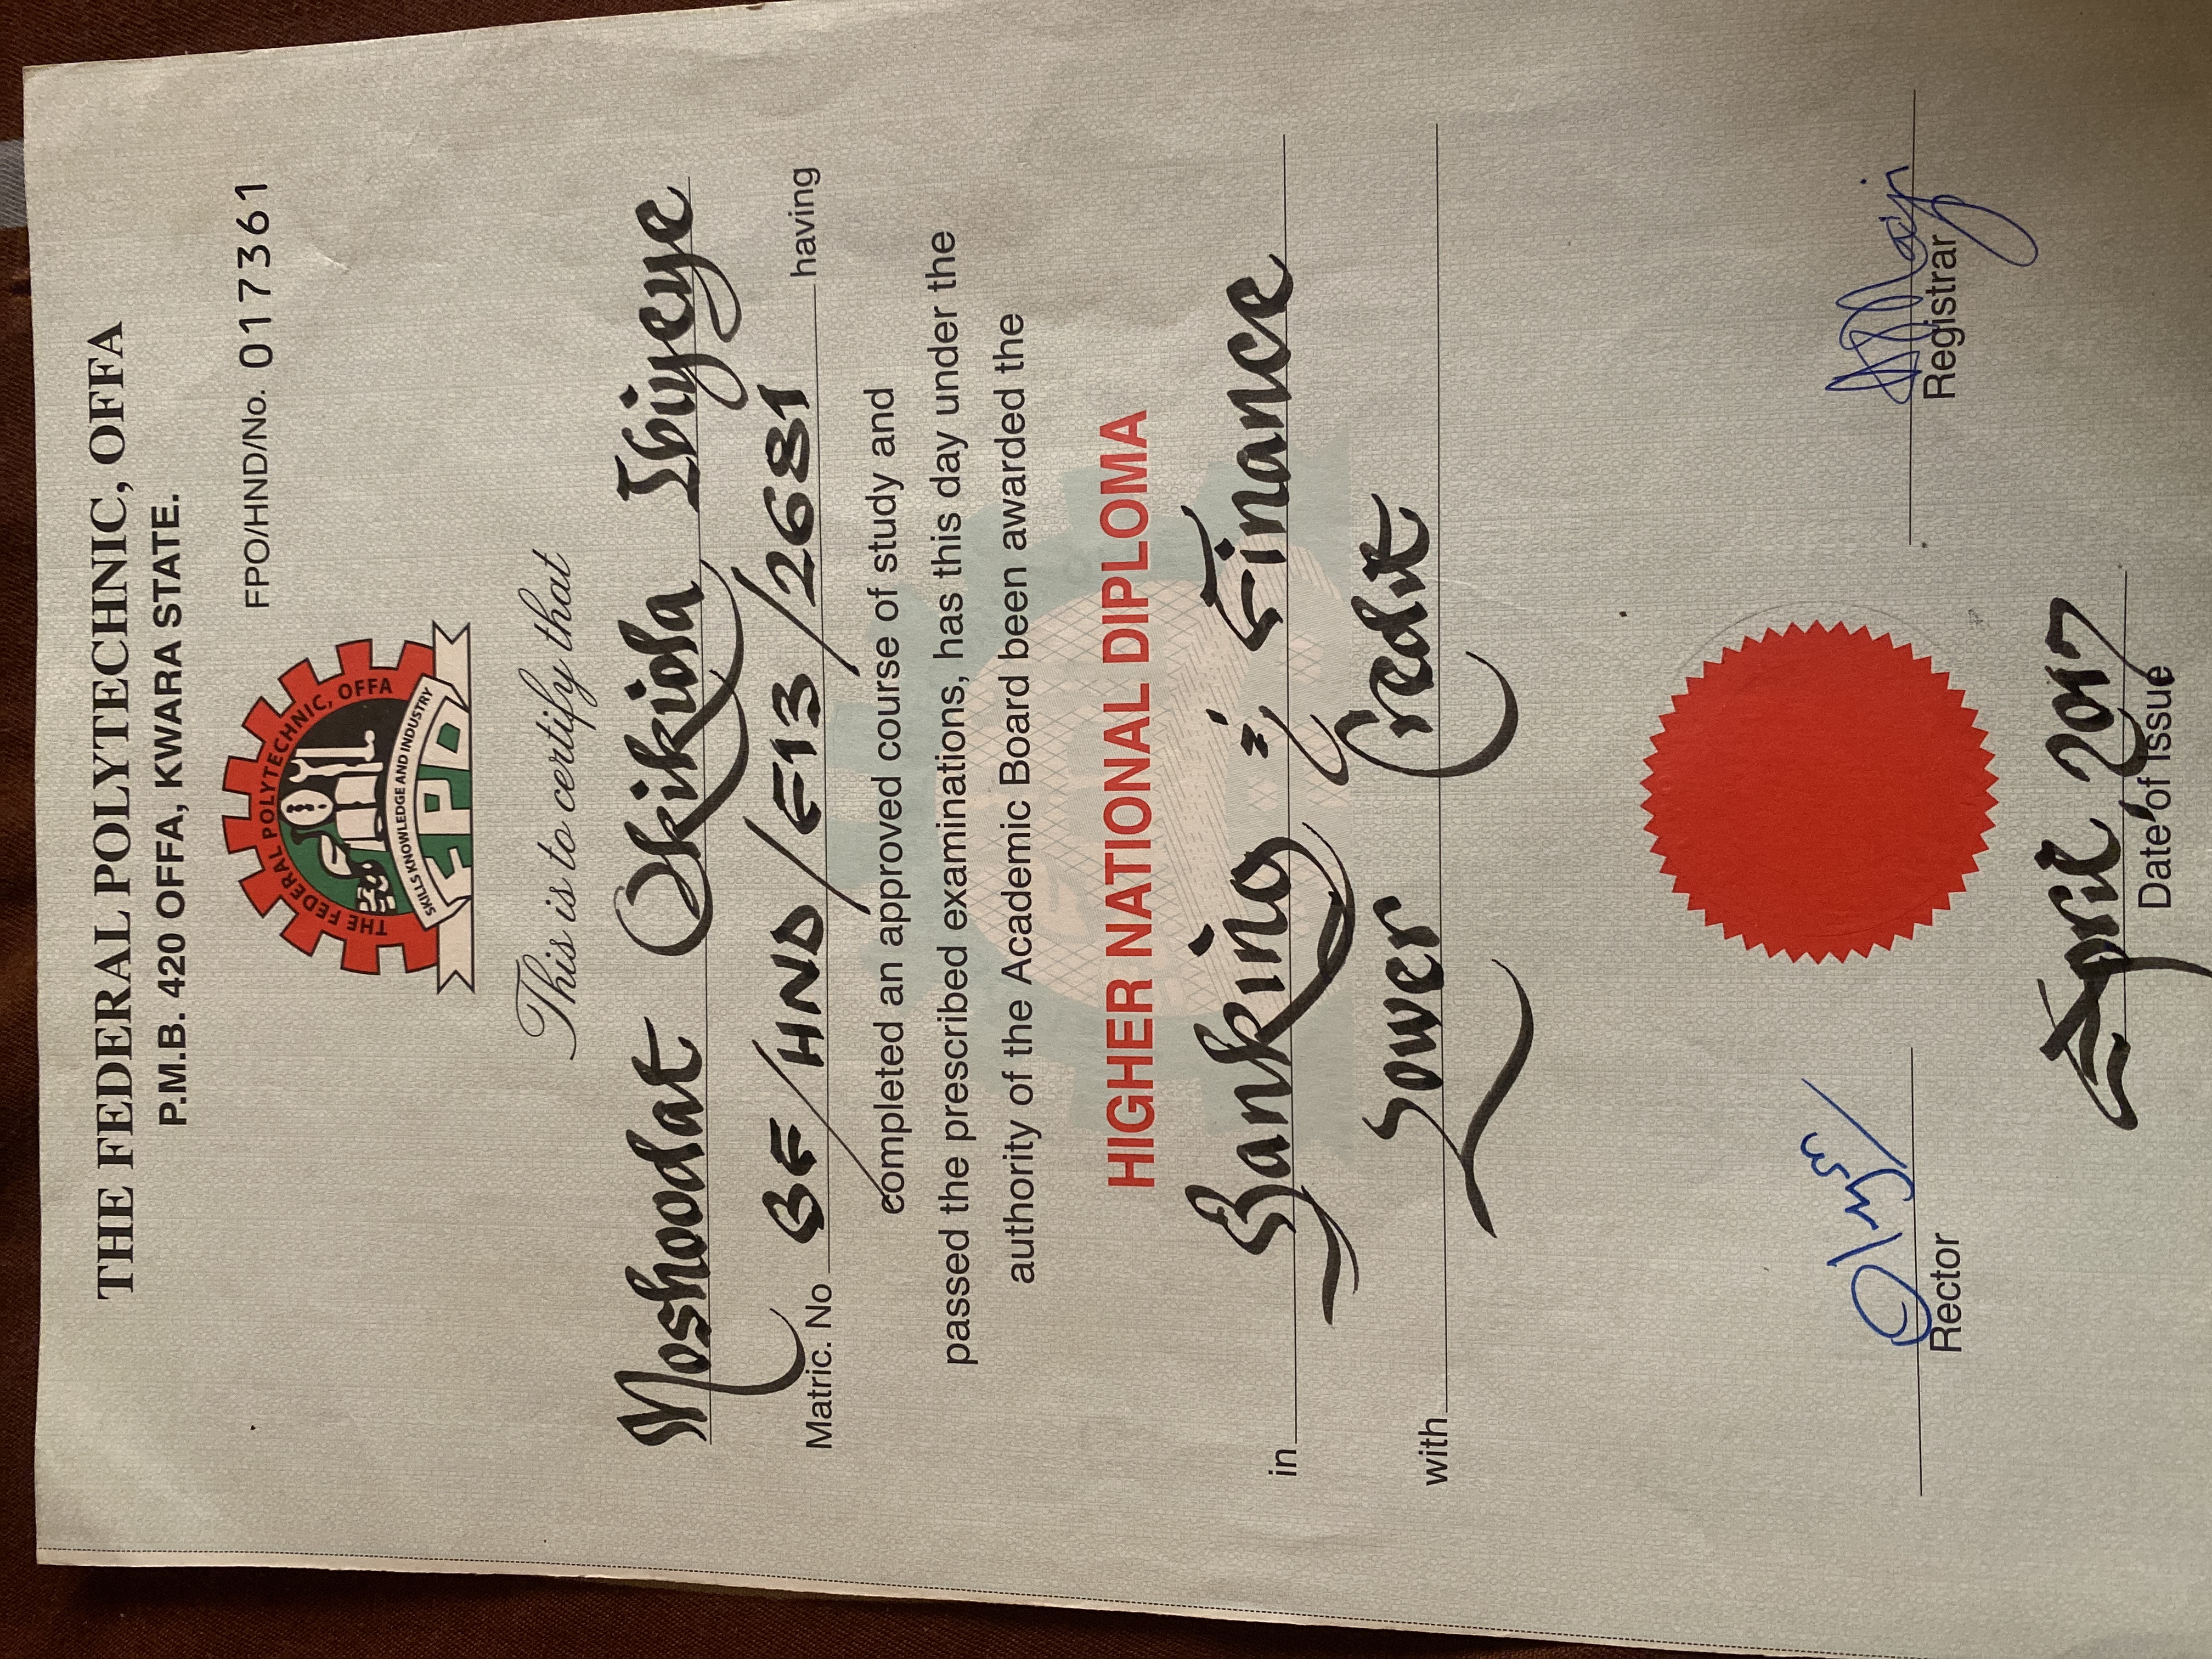 THE FEDERAL POLYTECHNIC, OFFA
P.M.B. 420 OFFA, KWARA STATE.
FPO/HND/No. 017361
THE FEDERAL POLYTECHNIC, OFFA
SKILLS KNOWLEDGE AND INDUSTRY
FPO
This is to certify that
Moshoodat Okikiola Ibiyeye
Matric. No BF/HND/F13/2681 having
completed an approved course of study and
passed the prescribed examinations, has this day under the
authority of the Academic Board been awarded the
HIGHER NATIONAL DIPLOMA
in Banking & Finance
with Lower Credit
Rector
Registrar
April, 2017
Date of Issue